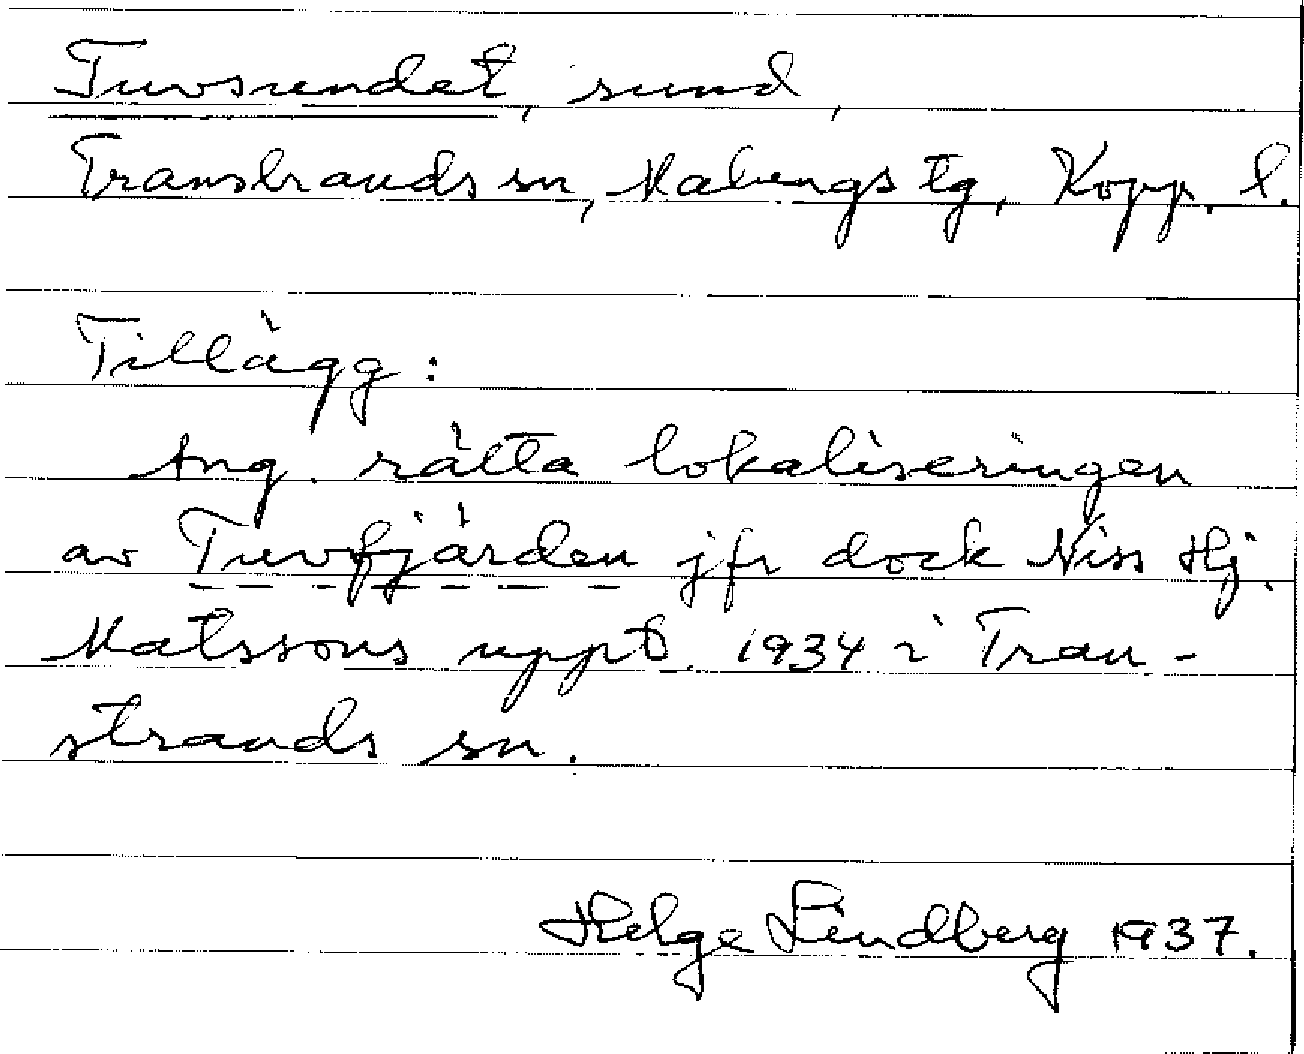 Tuvsundet, sund,
Transtrands sn, Malungs tg, Kopp. l.
Tillägg:
Ang. rätta lokaliseringen
av Tuvfjärden jfr dock Niss Hj.
Matssons uppt. 1934 i Tran-
strands sn.
Helge Lindberg 1937.